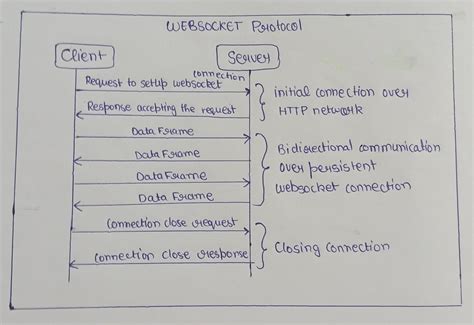 WEBSOCKET Protocol
Client
Server
connection
Request to setup websocket
initial connection over
HTTP network
Response accepting the request
Data Frame
Data Frame
Data Frame
Data Frame
Bidirectional communication
over persistent
websocket connection
Connection close request
Connection close response
Closing connection